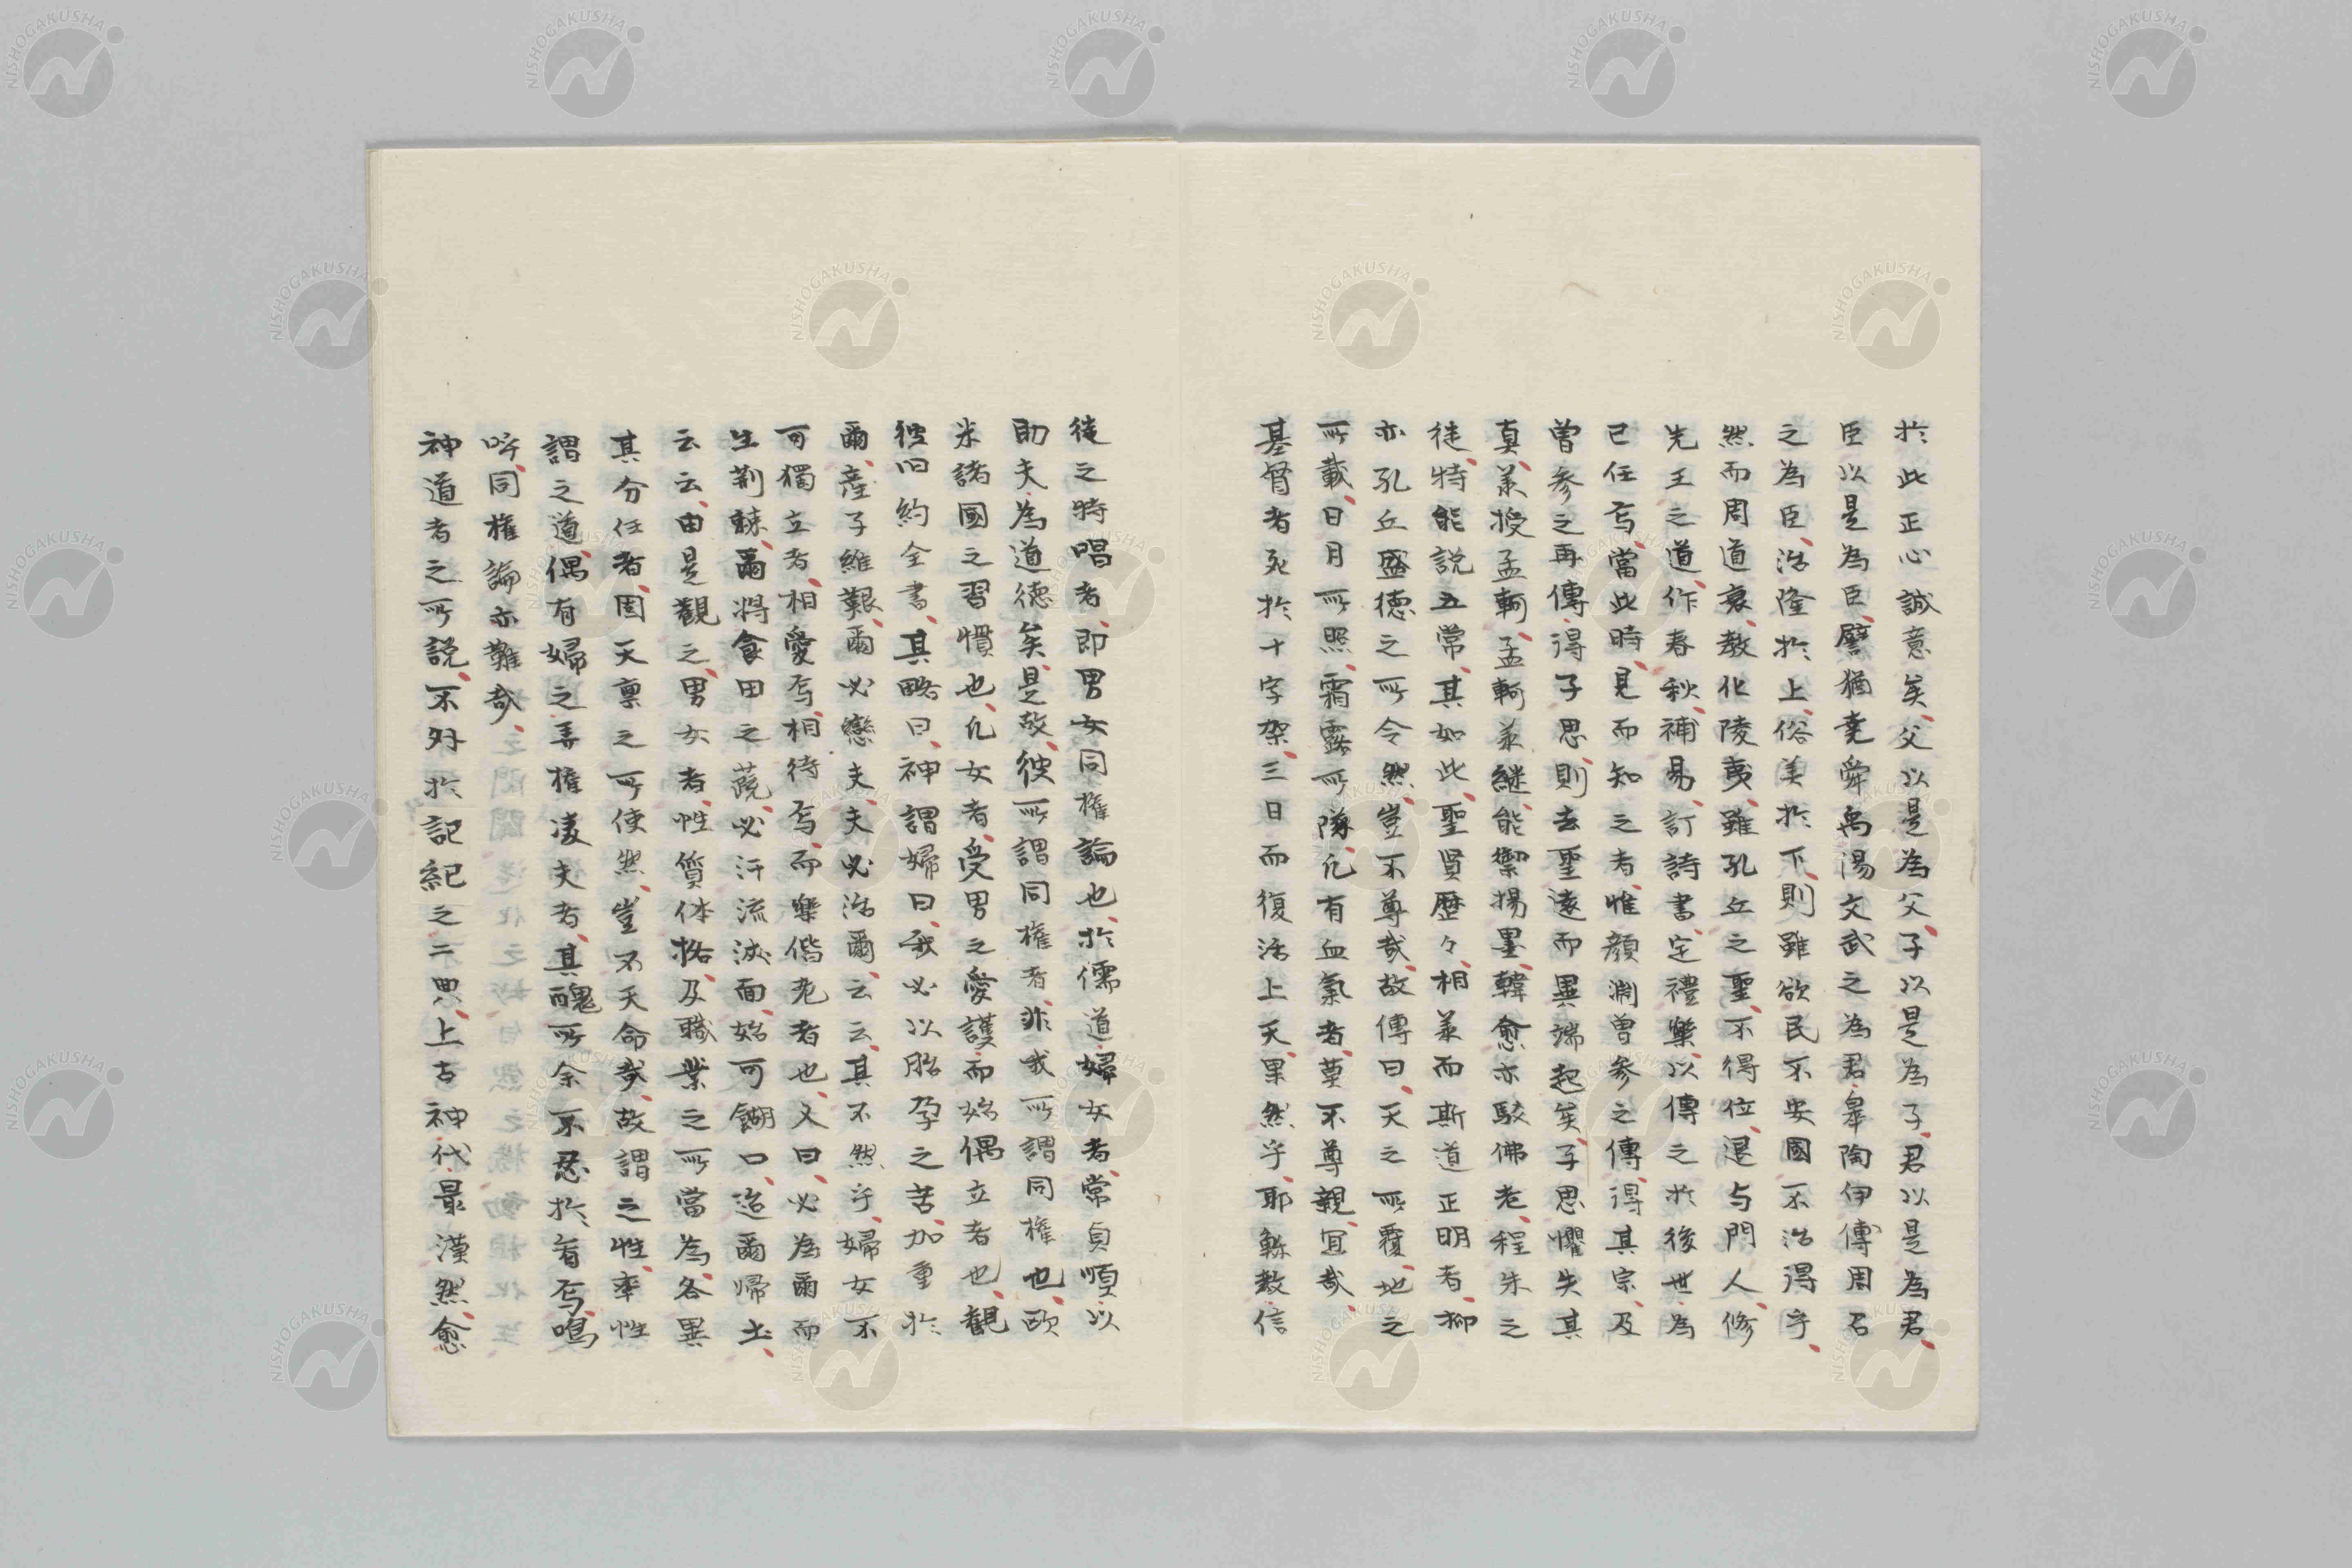 於此正心誠意矣父以是為父子以是為子君以是為君
臣以是為臣譬猶堯舜禹湯文武之為君皋陶伊傅周召
之為臣治隆於上俗美於下則雖欲民不安國不治得乎
然而周道衰教化陵夷雖孔丘之聖不得位退与門人修
先王之道作春秋補易訂詩書定禮樂以傳之於後世為
已任焉當此時見而知之者惟顔淵曽參之傳得其宗及
曽參之再傳得子思則去聖遠而異端起矣子思懼失其
真羕授孟軻孟軻羕継能禦揚墨韓愈亦駁佛老程朱之
徒特能説五常其如此聖賢歴々相羕而斯道正明者抑
亦孔丘盛徳之所令然豈不尊哉故傳曰天之所覆地之
所載日月所照霜露所隊凢有血氣者莫不尊親冝哉
基督者死於十字架三日而復活上天果然乎耶蘇教信
徒之時唱者即男女同権論也於儒道婦女者常貞順以
助夫為道徳矣是故彼所謂同権者非我所謂同権也歐
米諸國之習慣也凢女者受男之愛護而始偶立者也觀
彼旧約全書其略曰神謂婦曰我必以胎孕之苦加重於
爾産子維艱爾必戀夫夫必治爾云云其不然乎婦女不
可獨立者相愛焉相待焉而樂偕老者也又曰必為爾而
生荆棘爾将食田之蔬必汗流浹面始可餬口迨爾帰土
云云由是觀之男女者性質体格及職業之所當為各異
其分任者固天稟之所使然豈不天命哉故謂之性率性
謂之道偶有婦之弄権凌夫者其醜所余不忍於看焉嗚
呼同権論亦難哉
神道者之所説不外於記紀之二典上古神代最漠然愈